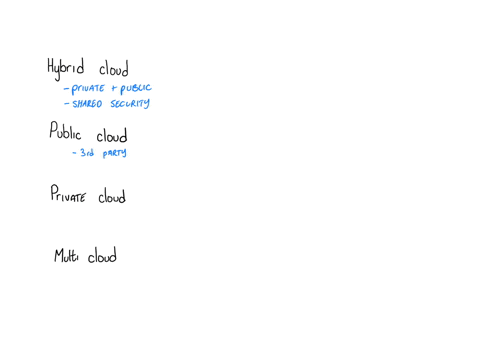 Hybrid cloud
- PRIVATE + PUBLIC
- SHARED SECURITY
Public cloud
- 3rd PARTY
PRIVATE cloud
Multi cloud